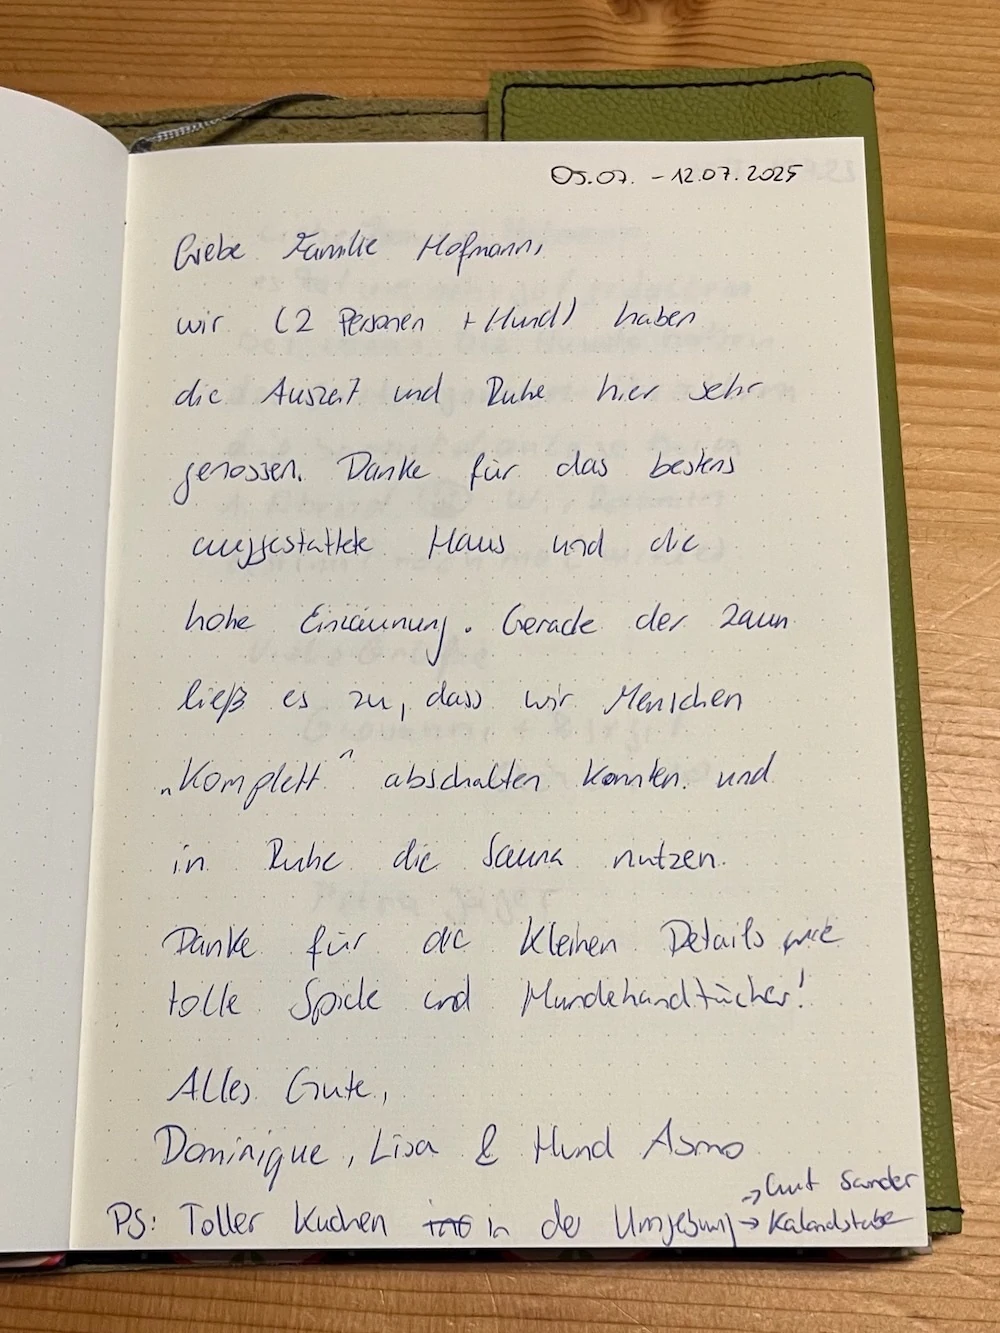 05.07. - 12.07.2025
Liebe Familie Hofmann,
wir (2 Personen + Hund) haben
die Auszeit und Ruhe hier sehr
genossen. Danke für das bestens
ausgestattete Haus und die
hohe Einzäunung. Gerade der Zaun
ließ es zu, dass wir Menschen
„Komplett" abschalten konnten und
in Ruhe die Sauna nutzen.
Danke für die kleinen Details wie
tolle Spiele und Hundehandtücher!
Alles Gute,
Dominique, Lisa & Hund Asmo
PS: Toller Kuchen in der Umgebung → Gut Sander
→ Kalandstube